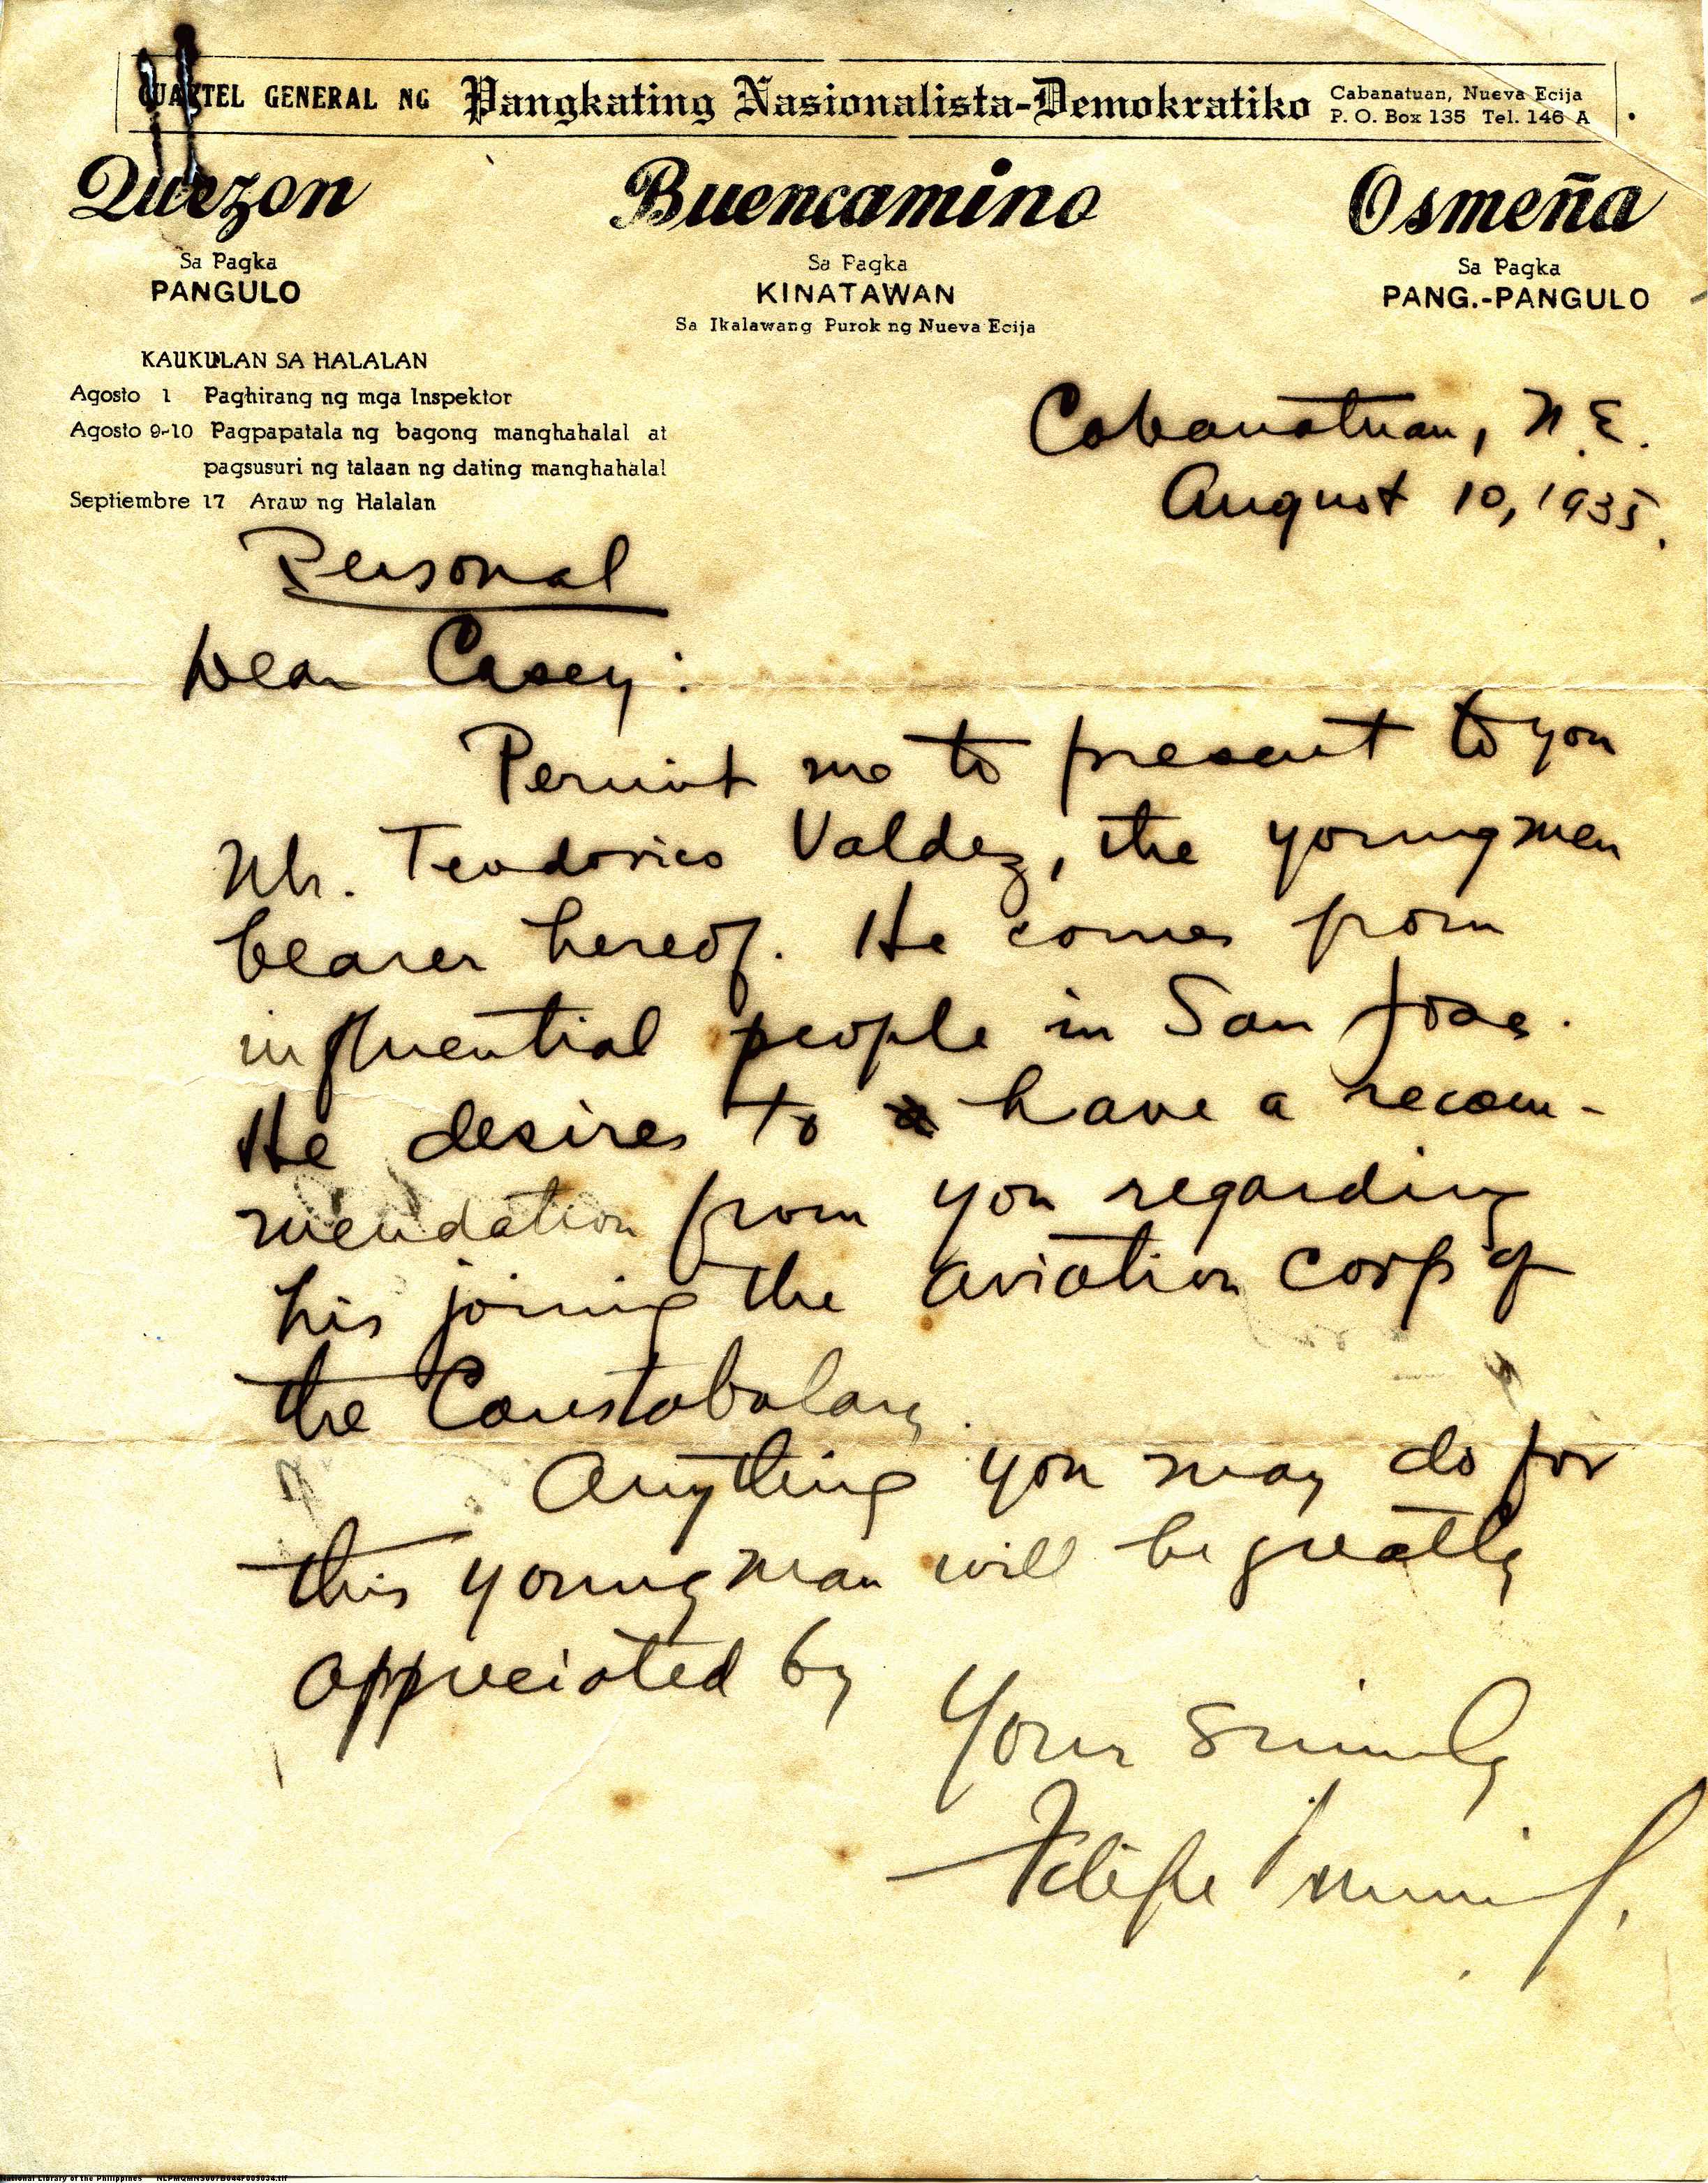 CUARTEL GENERAL NG Pangkating Nasionalista-Demokratiko Cabanatuan, Nueva Ecija
P. O. Box 135 Tel. 146 A
Quezon Buencamino Osmeña
Sa Pagka Sa Pagka Sa Pagka
PANGULO KINATAWAN PANG.-PANGULO
Sa Ikalawang Purok ng Nueva Ecija
KAUKULAN SA HALALAN
Agosto 1 Paghirang ng mga Inspektor
Agosto 9-10 Pagpapatala ng bagong manghahalal at
pagsusuri ng talaan ng dating manghahalal
Septiembre 17 Araw ng Halalan
Cabanatuan, N.E.
August 10, 1935.
Personal
Dear Casey:
Permit me to present to you
Mr. Teodorico Valdez, the young man
bearer hereof. He comes from
influential people in San Jose.
He desires to have a recom-
mendation from you regarding
his joining the aviation corps of
the Constabulary.
Anything you may do for
this young man will be greatly
appreciated by
Your sincerely
Felipe
National Library of the Philippines